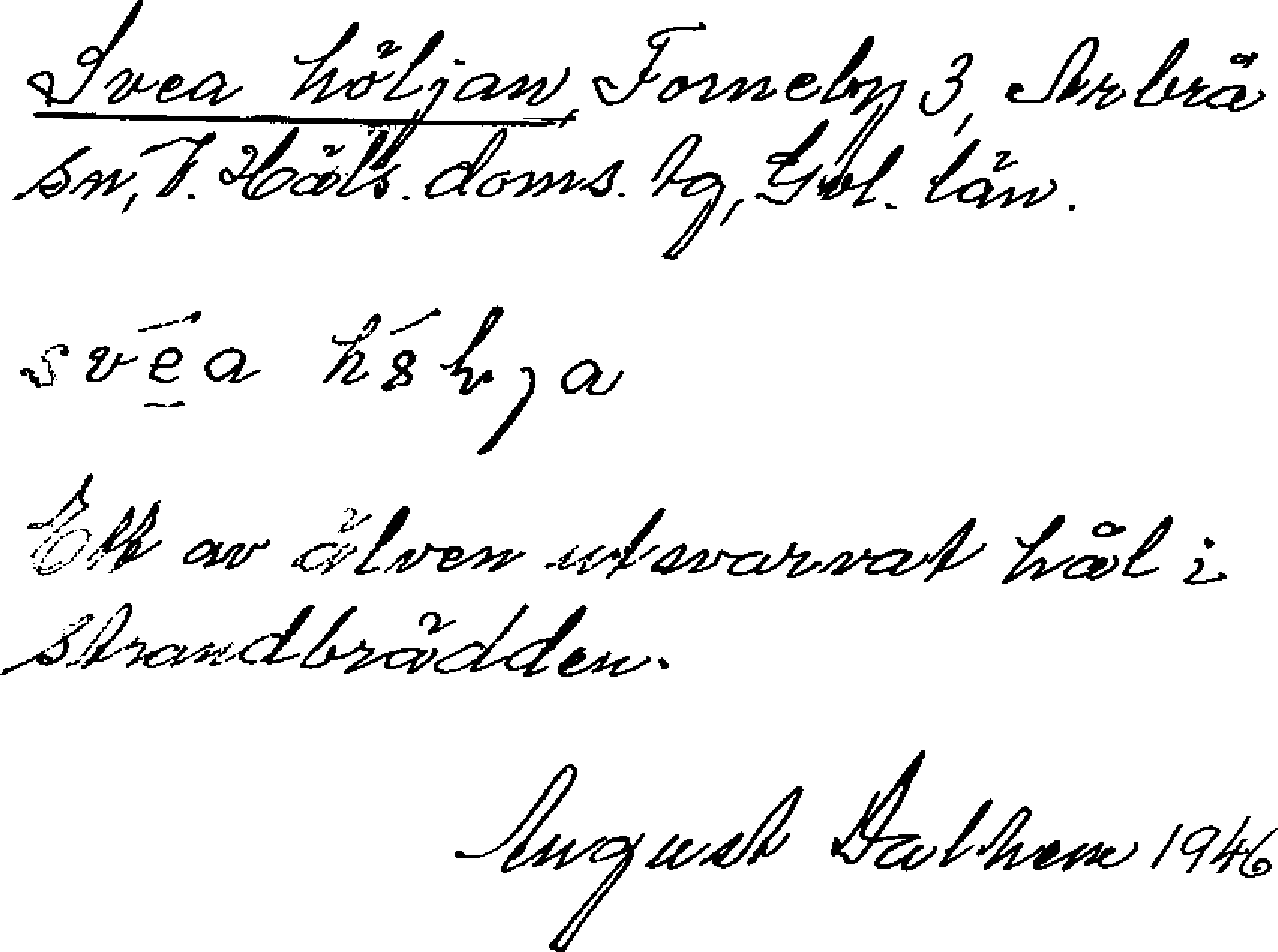 Svea höljan, Forneby 3, Arbrå
sn, V. Häls. doms. tg, Gvl. län.
Ett av älven utsvarvat hål i
strandbrädden.
August Dalhem 1946